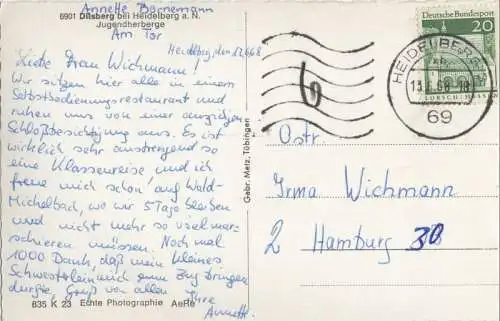 Annette Bornemann
6901 Dilsberg bei Heidelberg a. N.
Jugendherberge
Am Tor
Heidelberg, den 12.6.68
Liebe Frau Wichmann!
Wir sitzen hier alle in einem
Selbstbedienungsrestaurant und
ruhen uns von einer
Schloßbesichtigung aus. Es ist
wirklich sehr anstrengend so
eine Klassenreise und ich
freue mich schon auf Wald-
Michelbach, wo wir 5 Tage bleiben
und nicht mehr so viel mar-
schieren müssen. Noch mal
1000 Dank, daß mein kleines
Schwesterlein mich zum Zug bringen
durfte, Gruß von allen Ihre
Annette.
835 K 23 Echte Photographie AeRe
Gebr. Metz, Tübingen
Deutsche Bundespost
20
LORSCH/HESSEN
HEIDELBERG
13.6.68
69
6
Ostr.
Irma Wichmann
2 Hamburg 30